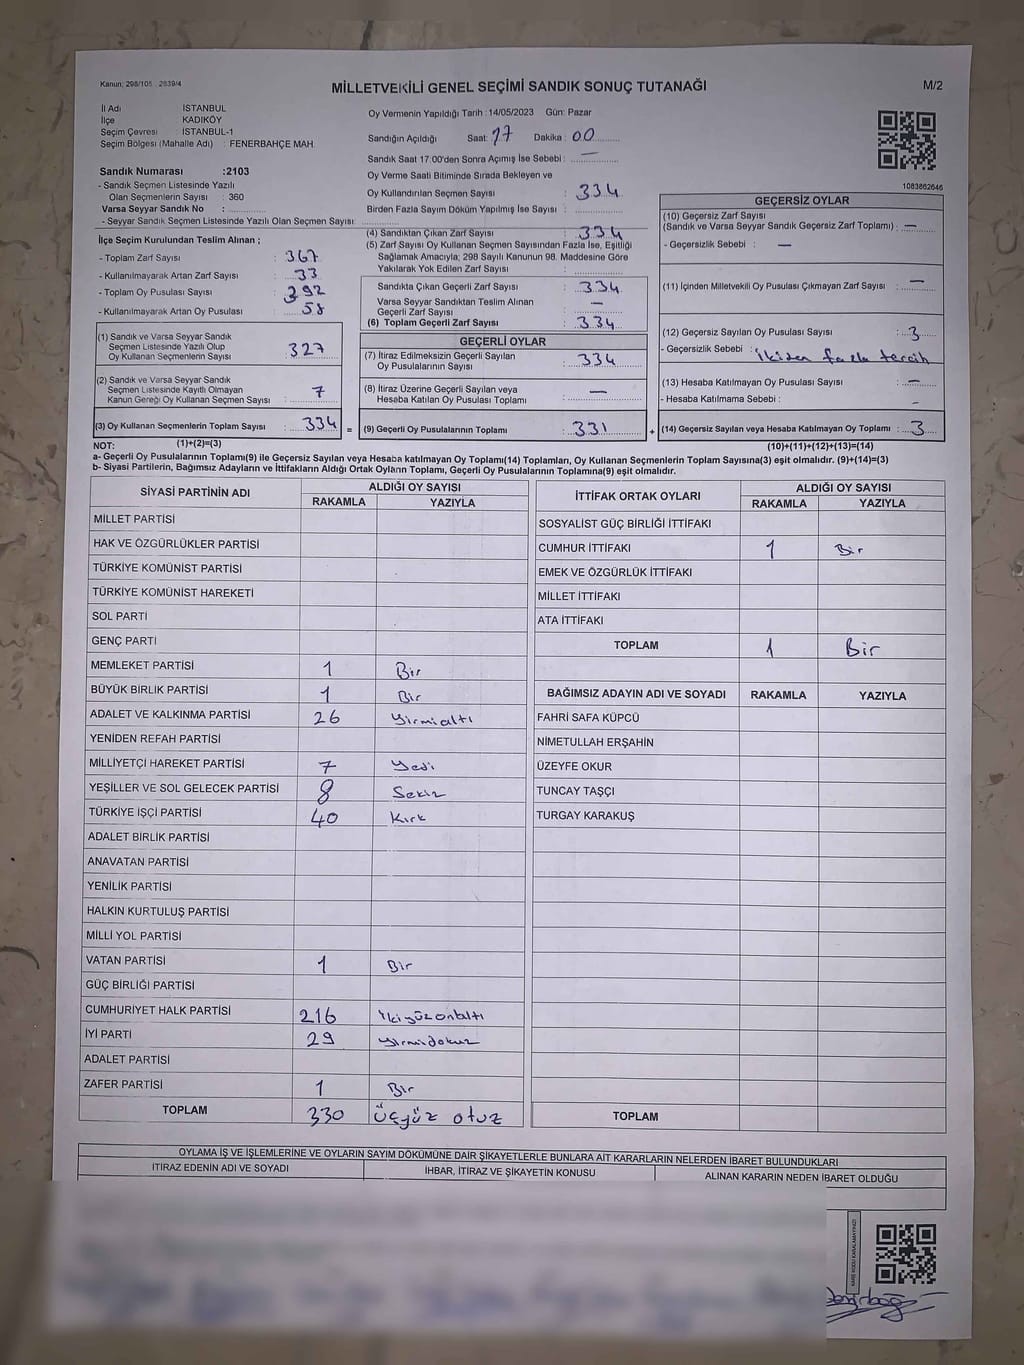 Kanun; 298/105 , 2839/4
MİLLETVEKİLİ GENEL SEÇİMİ SANDIK SONUÇ TUTANAĞI
M/2
İl Adı : İSTANBUL
İlçe : KADIKÖY
Seçim Çevresi : İSTANBUL-1
Seçim Bölgesi (Mahalle Adı) : FENERBAHÇE MAH.
Sandık Numarası :2103
- Sandık Seçmen Listesinde Yazılı
Olan Seçmenlerin Sayısı : 360
Varsa Seyyar Sandık No :
- Seyyar Sandık Seçmen Listesinde Yazılı Olan Seçmen Sayısı:
Oy Vermenin Yapıldığı Tarih :14/05/2023 Gün: Pazar
Sandığın Açıldığı Saat: 17 Dakika : 00
Sandık Saat 17:00'den Sonra Açımış İse Sebebi : —
Oy Verme Saati Bitiminde Sırada Bekleyen ve
Oy Kullandırılan Seçmen Sayısı : 334
Birden Fazla Sayım Döküm Yapılmış İse Sayısı :
1083862646
İlçe Seçim Kurulundan Teslim Alınan ;
- Toplam Zarf Sayısı : 367
- Kullanılmayarak Artan Zarf Sayısı : 33
- Toplam Oy Pusulası Sayısı : 392
- Kullanılmayarak Artan Oy Pusulası : 58
(1) Sandık ve Varsa Seyyar Sandık
Seçmen Listesinde Yazılı Olup
Oy Kullanan Seçmenlerin Sayısı : 327
(2) Sandık ve Varsa Seyyar Sandık
Seçmen Listesinde Kayıtlı Olmayan
Kanun Gereği Oy Kullanan Seçmen Sayısı : 7
(3) Oy Kullanan Seçmenlerin Toplam Sayısı : 334 =
(4) Sandıktan Çıkan Zarf Sayısı : 334
(5) Zarf Sayısı Oy Kullanan Seçmen Sayısından Fazla İse, Eşitliği
Sağlamak Amacıyla; 298 Sayılı Kanunun 98. Maddesine Göre
Yakılarak Yok Edilen Zarf Sayısı :
Sandıkta Çıkan Geçerli Zarf Sayısı : 334
Varsa Seyyar Sandıktan Teslim Alınan
Geçerli Zarf Sayısı : —
(6) Toplam Geçerli Zarf Sayısı : 334
GEÇERLİ OYLAR
(7) İtiraz Edilmeksizin Geçerli Sayılan
Oy Pusulalarının Sayısı : 334
(8) İtiraz Üzerine Geçerli Sayılan veya
Hesaba Katılan Oy Pusulası Toplamı : —
(9) Geçerli Oy Pusulalarının Toplamı : 331 +
GEÇERSİZ OYLAR
(10) Geçersiz Zarf Sayısı
(Sandık ve Varsa Seyyar Sandık Geçersiz Zarf Toplamı) : —
- Geçersizlik Sebebi : —
(11) İçinden Milletvekili Oy Pusulası Çıkmayan Zarf Sayısı : —
(12) Geçersiz Sayılan Oy Pusulası Sayısı : 3
- Geçersizlik Sebebi : ikiden fazla tercih
(13) Hesaba Katılmayan Oy Pusulası Sayısı : —
- Hesaba Katılmama Sebebi : -
(14) Geçersiz Sayılan veya Hesaba Katılmayan Oy Toplamı : 3
NOT: (1)+(2)=(3) (10)+(11)+(12)+(13)=(14)
a- Geçerli Oy Pusulalarının Toplamı(9) ile Geçersiz Sayılan veya Hesaba katılmayan Oy Toplamı(14) Toplamları, Oy Kullanan Seçmenlerin Toplam Sayısına(3) eşit olmalıdır. (9)+(14)=(3)
b- Siyasi Partilerin, Bağımsız Adayların ve İttifakların Aldığı Ortak Oyların Toplamı, Geçerli Oy Pusulalarının Toplamına(9) eşit olmalıdır.
SİYASİ PARTİNİN ADI ALDIĞI OY SAYISI
RAKAMLA YAZIYLA
MİLLET PARTİSİ
HAK VE ÖZGÜRLÜKLER PARTİSİ
TÜRKİYE KOMÜNİST PARTİSİ
TÜRKİYE KOMÜNİST HAREKETİ
SOL PARTİ
GENÇ PARTİ
MEMLEKET PARTİSİ 1 Bir
BÜYÜK BİRLİK PARTİSİ 1 Bir
ADALET VE KALKINMA PARTİSİ 26 Yirmialtı
YENİDEN REFAH PARTİSİ
MİLLİYETÇİ HAREKET PARTİSİ 7 Yedi
YEŞİLLER VE SOL GELECEK PARTİSİ 8 Sekiz
TÜRKİYE İŞÇİ PARTİSİ 40 Kırk
ADALET BİRLİK PARTİSİ
ANAVATAN PARTİSİ
YENİLİK PARTİSİ
HALKIN KURTULUŞ PARTİSİ
MİLLİ YOL PARTİSİ
VATAN PARTİSİ 1 Bir
GÜÇ BİRLİĞİ PARTİSİ
CUMHURİYET HALK PARTİSİ 216 ikiyüzonaltı
İYİ PARTİ 29 yirmidokuz
ADALET PARTİSİ
ZAFER PARTİSİ 1 Bir
TOPLAM 330 üçyüz otuz
İTTİFAK ORTAK OYLARI ALDIĞI OY SAYISI
RAKAMLA YAZIYLA
SOSYALİST GÜÇ BİRLİĞİ İTTİFAKI
CUMHUR İTTİFAKI 1 Bir
EMEK VE ÖZGÜRLÜK İTTİFAKI
MİLLET İTTİFAKI
ATA İTTİFAKI
TOPLAM 1 Bir
BAĞIMSIZ ADAYIN ADI VE SOYADI RAKAMLA YAZIYLA
FAHRİ SAFA KÜPCÜ
NİMETULLAH ERŞAHİN
ÜZEYFE OKUR
TUNCAY TAŞÇI
TURGAY KARAKUŞ
TOPLAM
OYLAMA İŞ VE İŞLEMLERİNE VE OYLARIN SAYIM DÖKÜMÜNE DAİR ŞİKAYETLERLE BUNLARA AİT KARARLARIN NELERDEN İBARET BULUNDUKLARI
İTİRAZ EDENİN ADI VE SOYADI İHBAR, İTİRAZ VE ŞİKAYETİN KONUSU ALINAN KARARIN NEDEN İBARET OLDUĞU
KARE KODU KARALAMAYINIZ!